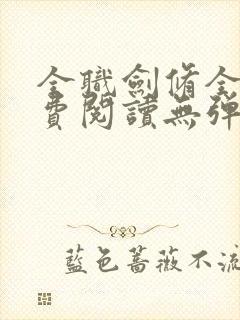 全職劍脩全
費閱讀無彈
藍色薔薇不流